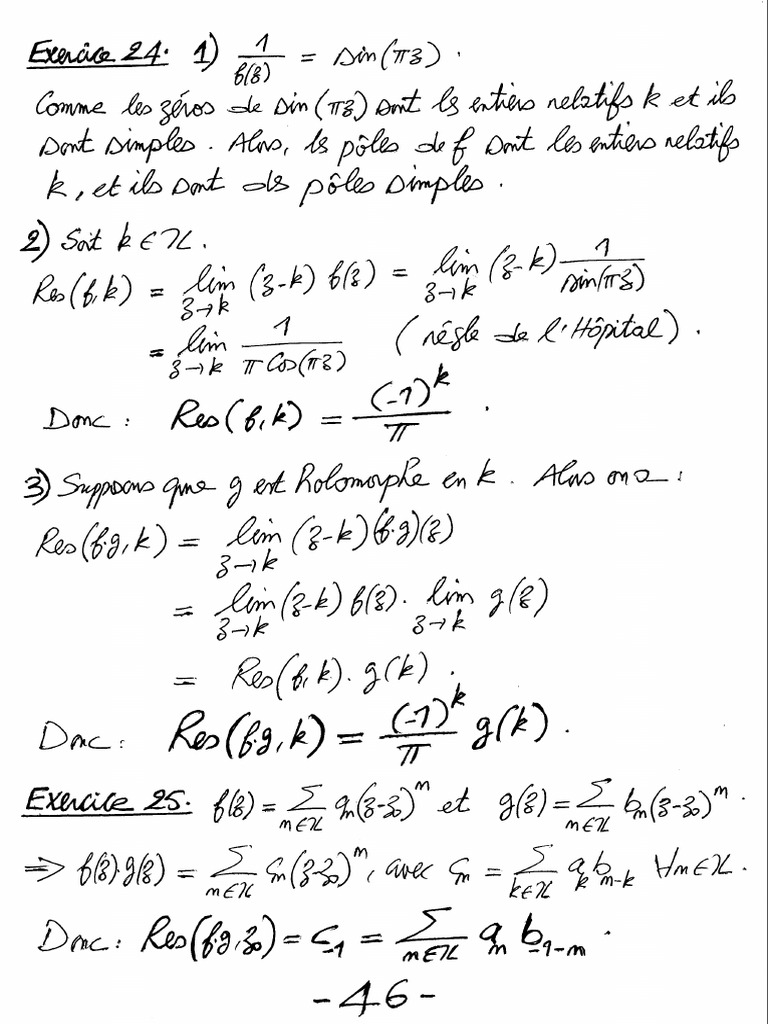 Exercice 24. 1) 1/f(z) = sin(πz).
Comme les zéros de sin(πz) sont les entiers relatifs k et ils
sont simples. Alors, les pôles de f sont les entiers relatifs
k, et ils sont des pôles simples.
2) Soit k ∈ ℤ.
Res(f,k) = lim_{z→k} (z-k) f(z) = lim_{z→k} (z-k) 1/sin(πz)
= lim_{z→k} 1/(π cos(πz)) (régle de l'Hôpital).
Donc : Res(f,k) = (-1)^k/π .
3) Supposons que g est holomorphe en k. Alors on a :
Res(f.g,k) = lim_{z→k} (z-k)(f.g)(z)
= lim_{z→k} (z-k) f(z). lim_{z→k} g(z)
= Res(f,k). g(k).
Donc : Res(f.g,k) = (-1)^k/π g(k).
Exercice 25. f(z) = ∑_{n∈ℤ} a_n(z-z_0)^n et g(z) = ∑_{n∈ℤ} b_n(z-z_0)^n.
⟹ f(z).g(z) = ∑_{n∈ℤ} c_n(z-z_0)^n, avec c_n = ∑_{k∈ℤ} a_k b_{n-k} ∀n∈ℤ.
Donc : Res(f.g,z_0) = c_{-1} = ∑_{n∈ℤ} a_n b_{-1-n}.
-46-